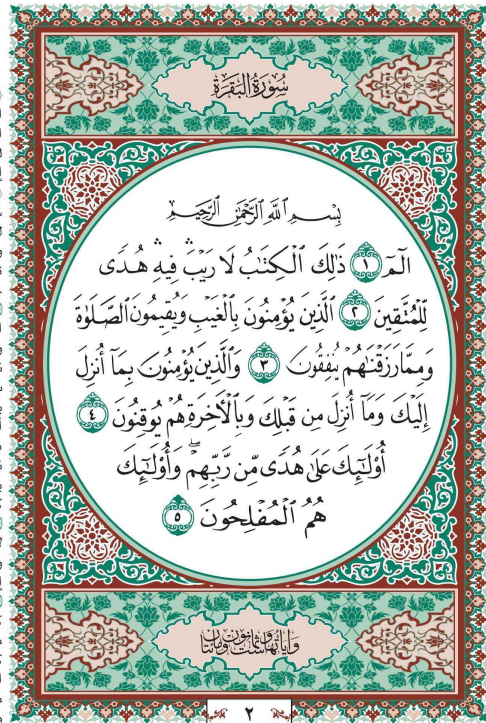 سُورَةُ البَقَرَةِ
بِسْمِ ٱللَّهِ ٱلرَّحْمَٰنِ ٱلرَّحِيمِ
الٓمٓ ١ ذَٰلِكَ ٱلْكِتَٰبُ لَا رَيْبَ ۛ فِيهِ ۛ هُدًى
لِّلْمُتَّقِينَ ٢ ٱلَّذِينَ يُؤْمِنُونَ بِٱلْغَيْبِ وَيُقِيمُونَ ٱلصَّلَوٰةَ
وَمِمَّا رَزَقْنَٰهُمْ يُنفِقُونَ ٣ وَٱلَّذِينَ يُؤْمِنُونَ بِمَآ أُنزِلَ
إِلَيْكَ وَمَآ أُنزِلَ مِن قَبْلِكَ وَبِٱلْأَخِرَةِ هُمْ يُوقِنُونَ ٤
أُو۟لَٰٓئِكَ عَلَىٰ هُدًى مِّن رَّبِّهِمْ ۖ وَأُو۟لَٰٓئِكَ
هُمُ ٱلْمُفْلِحُونَ ٥
وَآيَاتُهَا سِتٌّ وَثَمَانُونَ وَمِائَتَانِ
٢